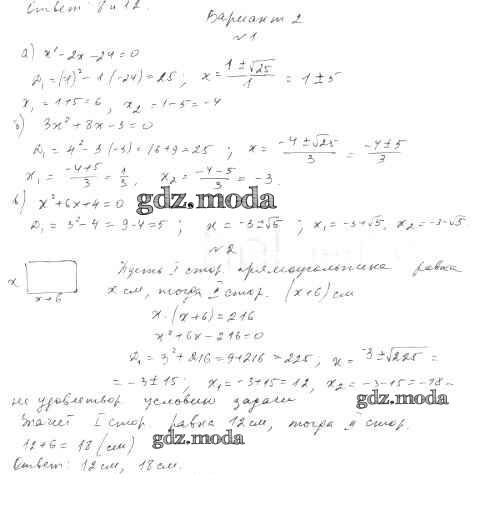 Ответ: 8 и 12.
Вариант 2
№1
а) x² - 2x - 24 = 0
D₁ = (1)² - 1 (-24) = 25 ; x = (1 ± √25)/1 = 1 ± 5
x₁ = 1+5 = 6, x₂ = 1-5 = -4
б) 3x² + 8x - 3 = 0
D₁ = 4² - 3(-3) = 16+9 = 25 ; x = (-4 ± √25)/3 = (-4 ± 5)/3
x₁ = (-4+5)/3 = 1/3, x₂ = (-4-5)/3 = -3.
в) x² + 6x + 4 = 0
gdz.moda
D₁ = 3² - 4 = 9-4 = 5 ; x = -3 ± √5 ; x₁ = -3+√5, x₂ = -3-√5.
№2
x
x+6
Пусть I стор. прямоугольника равна
x см, тогда II стор. (x+6) см
x·(x+6) = 216
x² + 6x - 216 = 0
D₁ = 3² + 216 = 9+216 = 225 ; x = -3 ± √225 =
= -3 ± 15 ; x₁ = -3+15 = 12, x₂ = -3-15 = -18 -
не удовлетвор. условию задачи
gdz.moda
Значит I стор. равна 12 см, тогда II стор.
12+6 = 18 (см)
gdz.moda
Ответ: 12 см, 18 см.